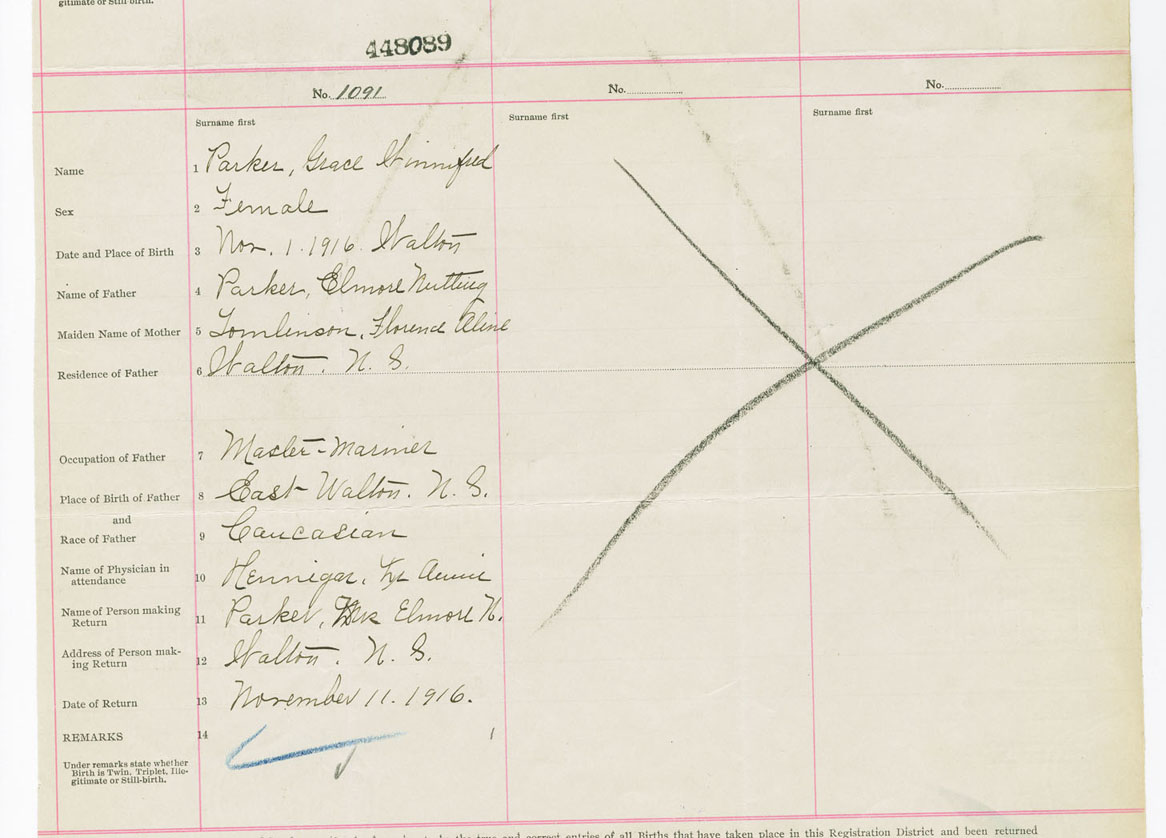 gitimate or Still-birth.
448089
No. 1091 No. No.
Surname first Surname first Surname first
Name 1 Parker, Grace Winnifred
Sex 2 Female
Date and Place of Birth 3 Nov. 1. 1916. Walton
Name of Father 4 Parker, Elmore Nutting
Maiden Name of Mother 5 Tomlinson, Florence Aline
Residence of Father 6 Walton. N. S.
Occupation of Father 7 Master-Mariner
Place of Birth of Father 8 East Walton. N. S.
and
Race of Father 9 Caucasian
Name of Physician in
attendance 10 Hennigar, Dr Annie
Name of Person making
Return 11 Parker, Mrs Elmore N.
Address of Person mak-
ing Return 12 Walton. N. S.
Date of Return 13 November 11. 1916.
REMARKS 14 1
Under remarks state whether
Birth is Twin, Triplet, Ille-
gitimate or Still-birth.
the true and correct entries of all Births that have taken place in this Registration District and been returned